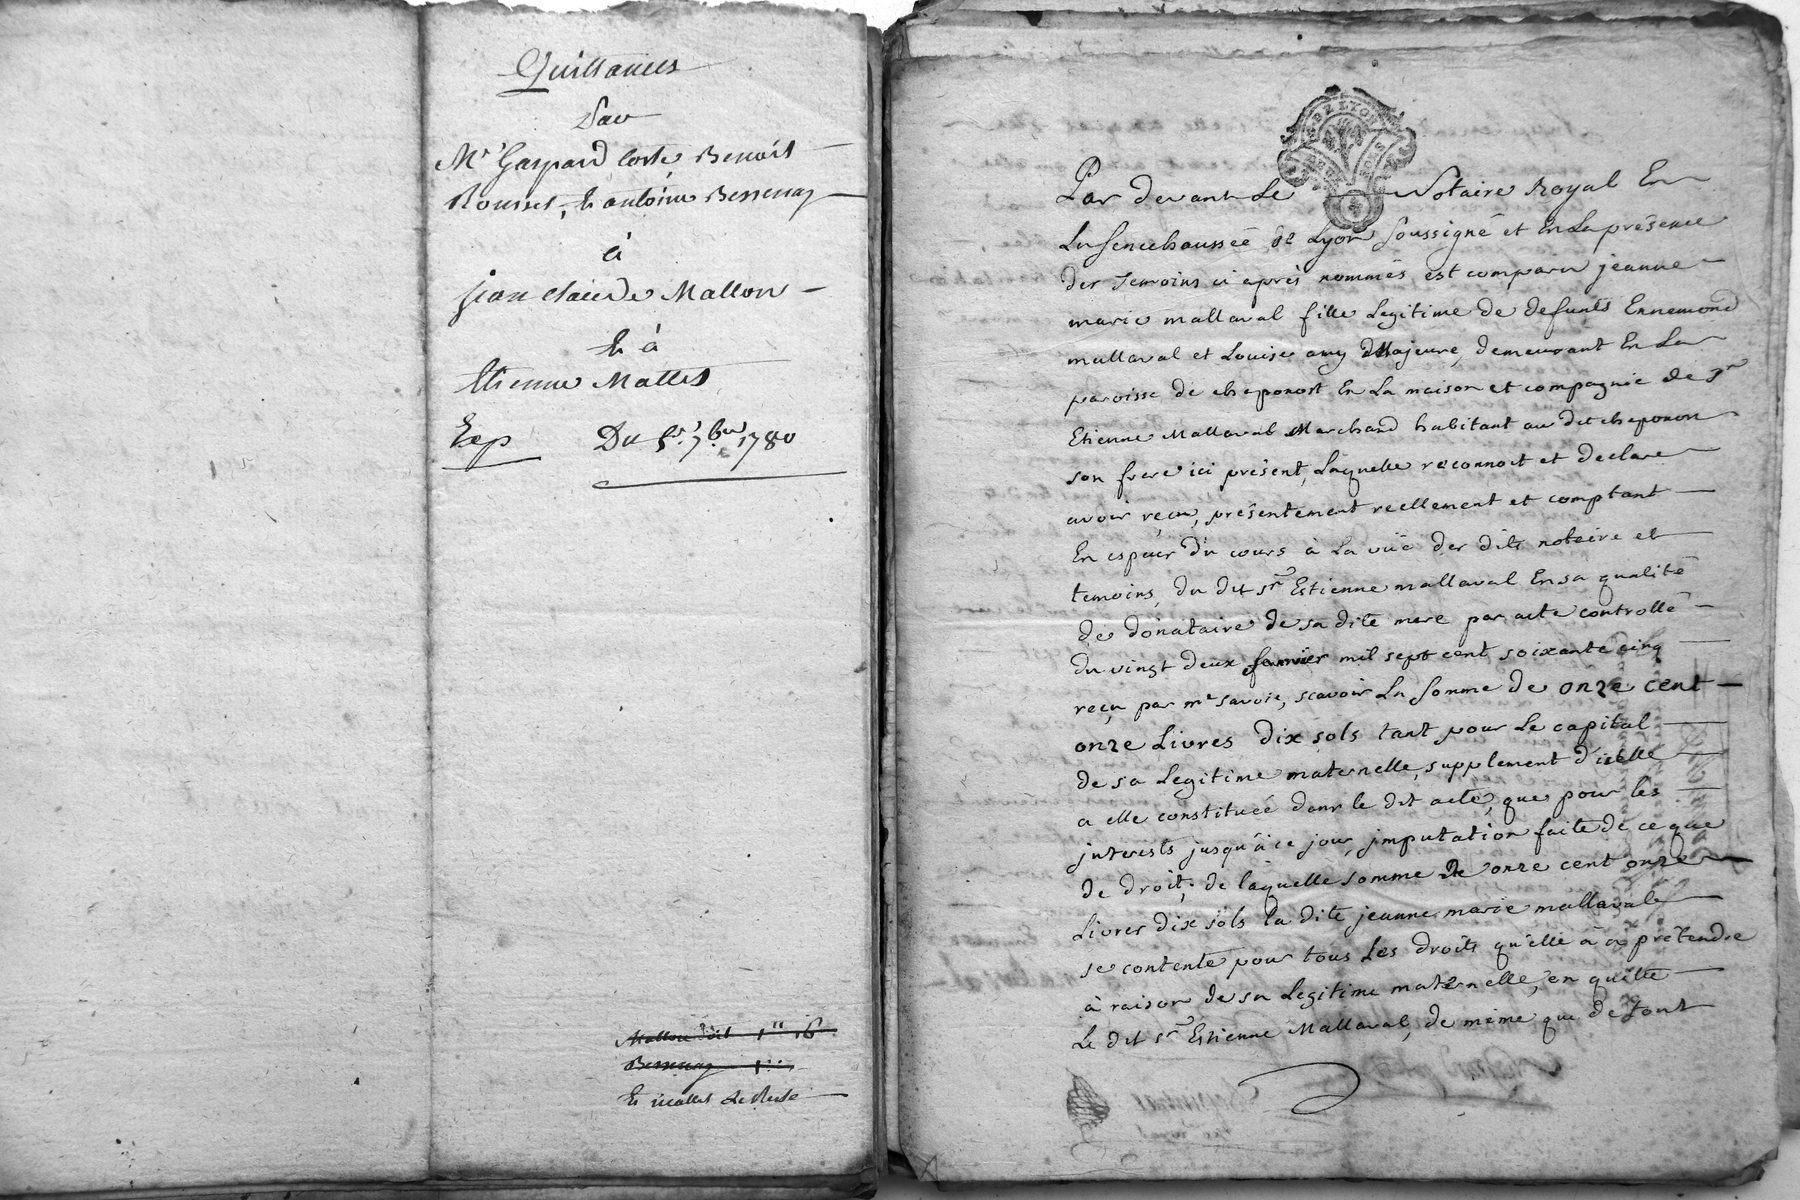 Quittances
Par
Mr Gaspard Coste, Benoit
Rousset, & antoine Bessenay
à
jean claude Mallon
& à
Etienne Mattes
Exp Du 5e 7bre 1780
Mallon doit 1" 16
Bessenay 1"
& mattes le Reste
DE LYON
DEUX SOLS
Par devant Le Notaire Royal En
La Senechaussée de Lyon soussigné et En La présence
des Temoins ci après nommés est comparu jeanne
marie mallaval fille Legitime de defunts Ennemond
mallaval et Louise amy Majeure, demeurant En La
paroisse de chaponost En La maison et compagnie de Sr
Etienne Mallaval Marchand habitant au dit chaponon
son frere ici présent, Laquelle reconnoit et declare
avoir reçu, présentement reellement et comptant
En especes du cours à La vüe des dits notaire et
temoins, du dit Sr Estienne mallaval En sa qualité
de donataire de sa dite mere par acte controllé
du vingt deux mil sept cent soixante cinq
reçu par me Savoie, scavoir La somme de onze cent
onze Livres dix sols tant pour Le capital
de sa Legitime maternelle, supplement d'icelle
a elle constituée dans le dit acte, que pour les
interests jusqu'à ce jour, imputation faite de ce que
de droit, de laquelle somme de onze cent onze
Livres dix sols la dite jeanne marie mallaval
se contente pour tous Les droits qu'elle a à prétendre
à raison de sa Legitime maternelle, en quitte
Le dit Sr Estienne Mallaval, de même que de tout